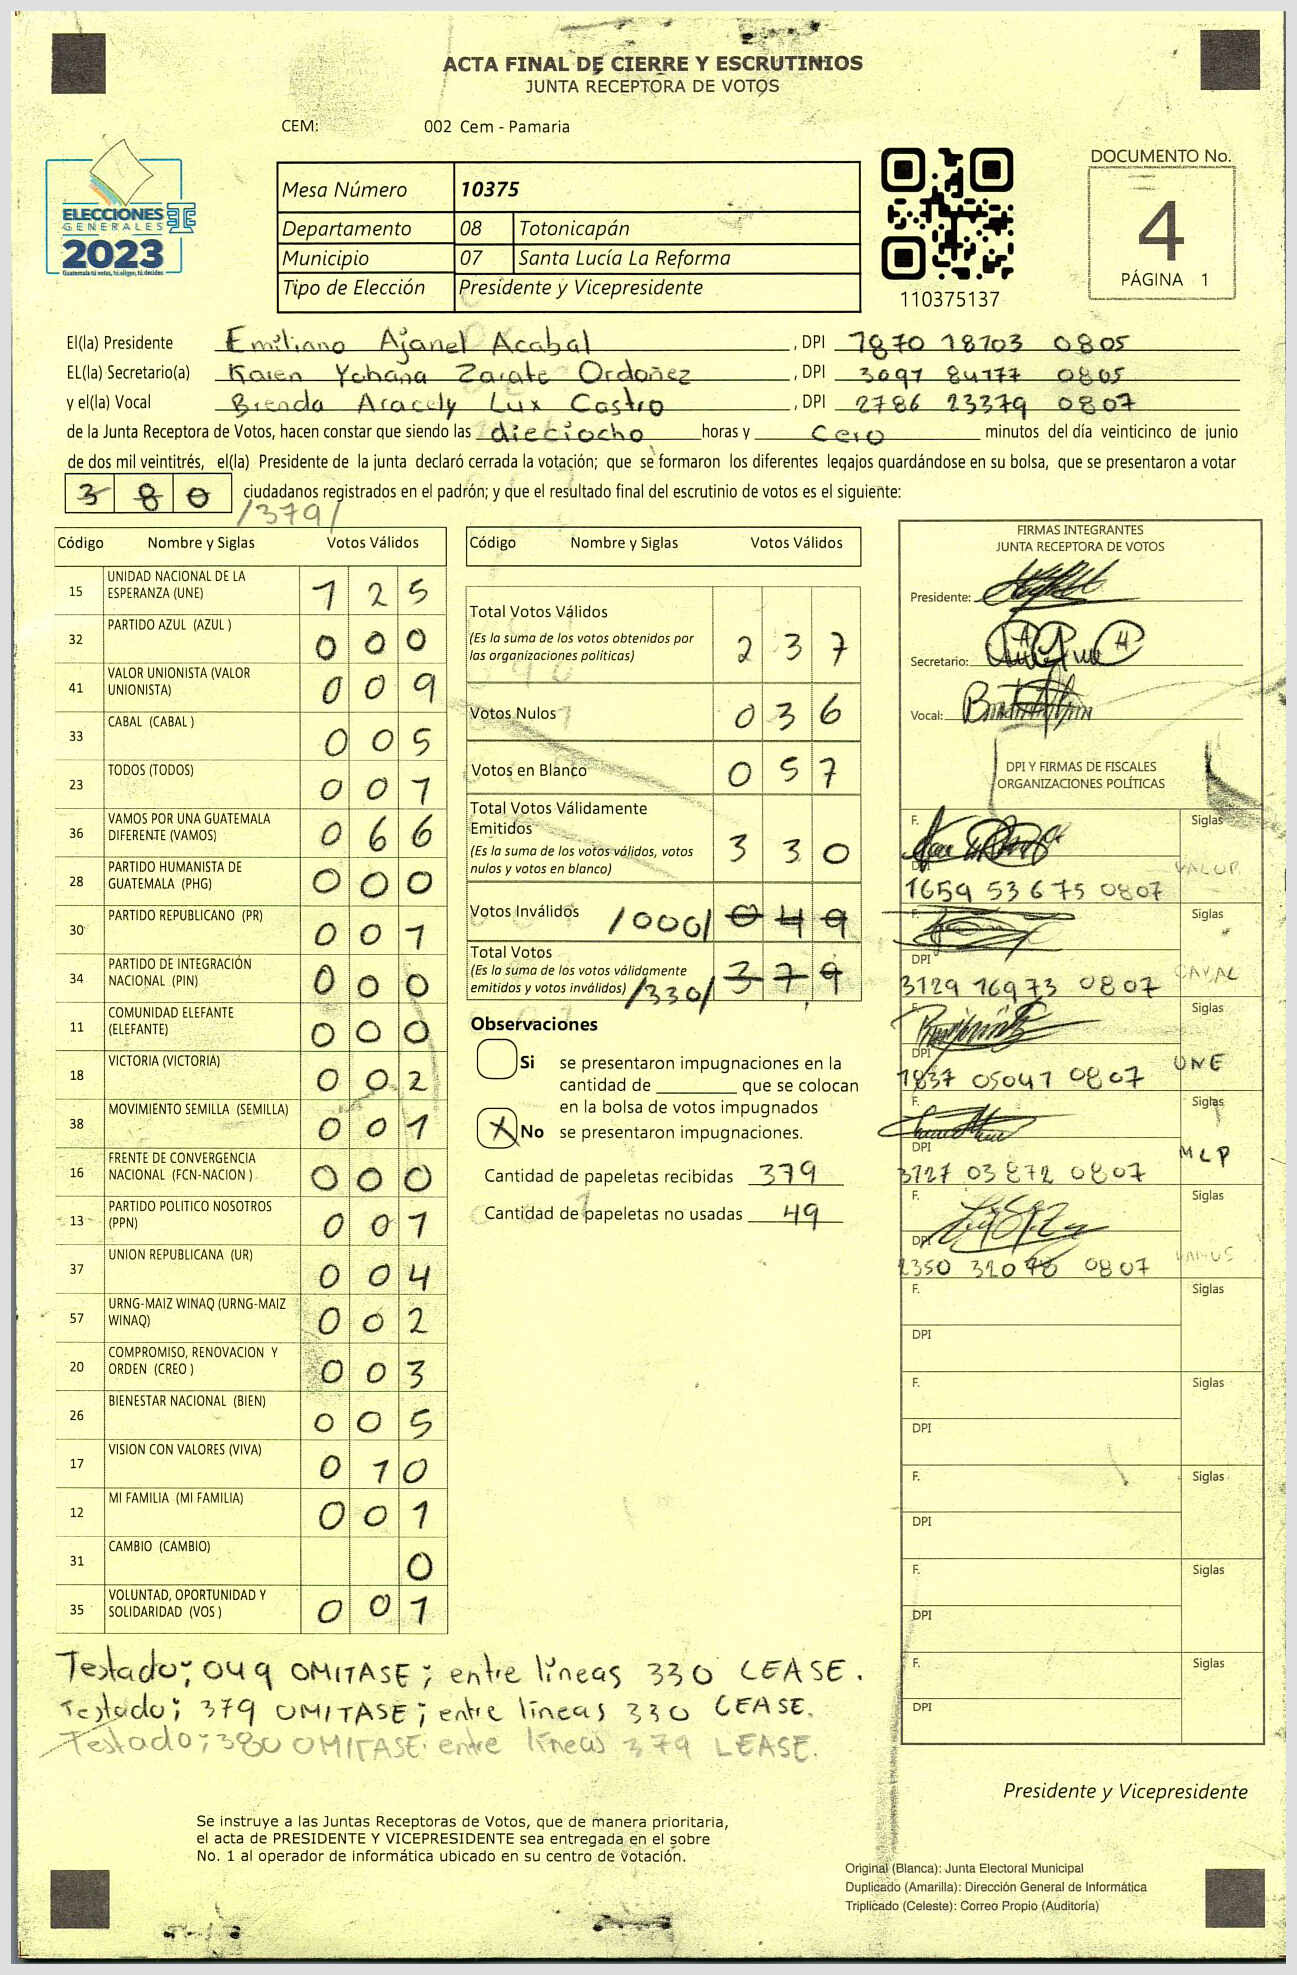 ACTA FINAL DE CIERRE Y ESCRUTINIOS
JUNTA RECEPTORA DE VOTOS
CEM: 002 Cem - Pamaria
ELECCIONES
GENERALES
2023
Guatemala tú votas, tú eliges, tú decides
Mesa Número 10375
Departamento 08 Totonicapán
Municipio 07 Santa Lucía La Reforma
Tipo de Elección Presidente y Vicepresidente
110375137
DOCUMENTO No.
4
PÁGINA 1
El(la) Presidente Emiliano Ajanel Acabal, DPI 1870 18703 0805
EL(la) Secretario(a) Karen Yohana Zarate Ordoñez, DPI 3097 84177 0805
y el(la) Vocal Brenda Aracely Lux Castro, DPI 2786 23379 0807
de la Junta Receptora de Votos, hacen constar que siendo las dieciocho horas y Cero minutos del día veinticinco de junio
de dos mil veintitrés, el(la) Presidente de la junta declaró cerrada la votación; que se formaron los diferentes legajos guardándose en su bolsa, que se presentaron a votar
380 ciudadanos registrados en el padrón; y que el resultado final del escrutinio de votos es el siguiente:
/379/
Código Nombre y Siglas Votos Válidos
15 UNIDAD NACIONAL DE LA ESPERANZA (UNE) 125
32 PARTIDO AZUL (AZUL ) 000
41 VALOR UNIONISTA (VALOR UNIONISTA) 009
33 CABAL (CABAL ) 005
23 TODOS (TODOS) 007
36 VAMOS POR UNA GUATEMALA DIFERENTE (VAMOS) 066
28 PARTIDO HUMANISTA DE GUATEMALA (PHG) 000
30 PARTIDO REPUBLICANO (PR) 001
34 PARTIDO DE INTEGRACIÓN NACIONAL (PIN) 000
11 COMUNIDAD ELEFANTE (ELEFANTE) 000
18 VICTORIA (VICTORIA) 002
38 MOVIMIENTO SEMILLA (SEMILLA) 001
16 FRENTE DE CONVERGENCIA NACIONAL (FCN-NACION ) 000
13 PARTIDO POLITICO NOSOTROS (PPN) 001
37 UNION REPUBLICANA (UR) 004
57 URNG-MAIZ WINAQ (URNG-MAIZ WINAQ) 002
20 COMPROMISO, RENOVACION Y ORDEN (CREO ) 003
26 BIENESTAR NACIONAL (BIEN) 005
17 VISION CON VALORES (VIVA) 010
12 MI FAMILIA (MI FAMILIA) 001
31 CAMBIO (CAMBIO) 0
35 VOLUNTAD, OPORTUNIDAD Y SOLIDARIDAD (VOS ) 001
Código Nombre y Siglas Votos Válidos
Total Votos Válidos 237
(Es la suma de los votos obtenidos por
las organizaciones políticas)
Votos Nulos 036
Votos en Blanco 057
Total Votos Válidamente
Emitidos 330
(Es la suma de los votos válidos, votos
nulos y votos en blanco)
Votos Inválidos /000/ 049
Total Votos
(Es la suma de los votos válidamente
emitidos y votos inválidos) /330/ 379
Observaciones
Si se presentaron impugnaciones en la
cantidad de ________ que se colocan
en la bolsa de votos impugnados
X No se presentaron impugnaciones.
Cantidad de papeletas recibidas 379
Cantidad de papeletas no usadas 49
FIRMAS INTEGRANTES
JUNTA RECEPTORA DE VOTOS
Presidente:
Secretario:
Vocal:
DPI Y FIRMAS DE FISCALES
ORGANIZACIONES POLÍTICAS
F. Siglas
DPI VALOR
1659 53675 0807
F. Siglas
DPI CAVAL
3129 16973 0807
F. Siglas
DPI UNE
1837 05047 0807
F. Siglas
DPI MLP
3727 03872 0807
F. Siglas
DPI VAMUS
2350 32078 0807
F. Siglas
DPI
F. Siglas
DPI
F. Siglas
DPI
F. Siglas
DPI
F. Siglas
DPI
Testado; 049 OMITASE; entre líneas 330 LEASE.
Testado; 379 OMITASE; entre líneas 330 LEASE.
Testado; 380 OMITASE; entre líneas 379 LEASE.
Presidente y Vicepresidente
Se instruye a las Juntas Receptoras de Votos, que de manera prioritaria,
el acta de PRESIDENTE Y VICEPRESIDENTE sea entregada en el sobre
No. 1 al operador de informática ubicado en su centro de votación.
Original (Blanca): Junta Electoral Municipal
Duplicado (Amarilla): Dirección General de Informática
Triplicado (Celeste): Correo Propio (Auditoría)